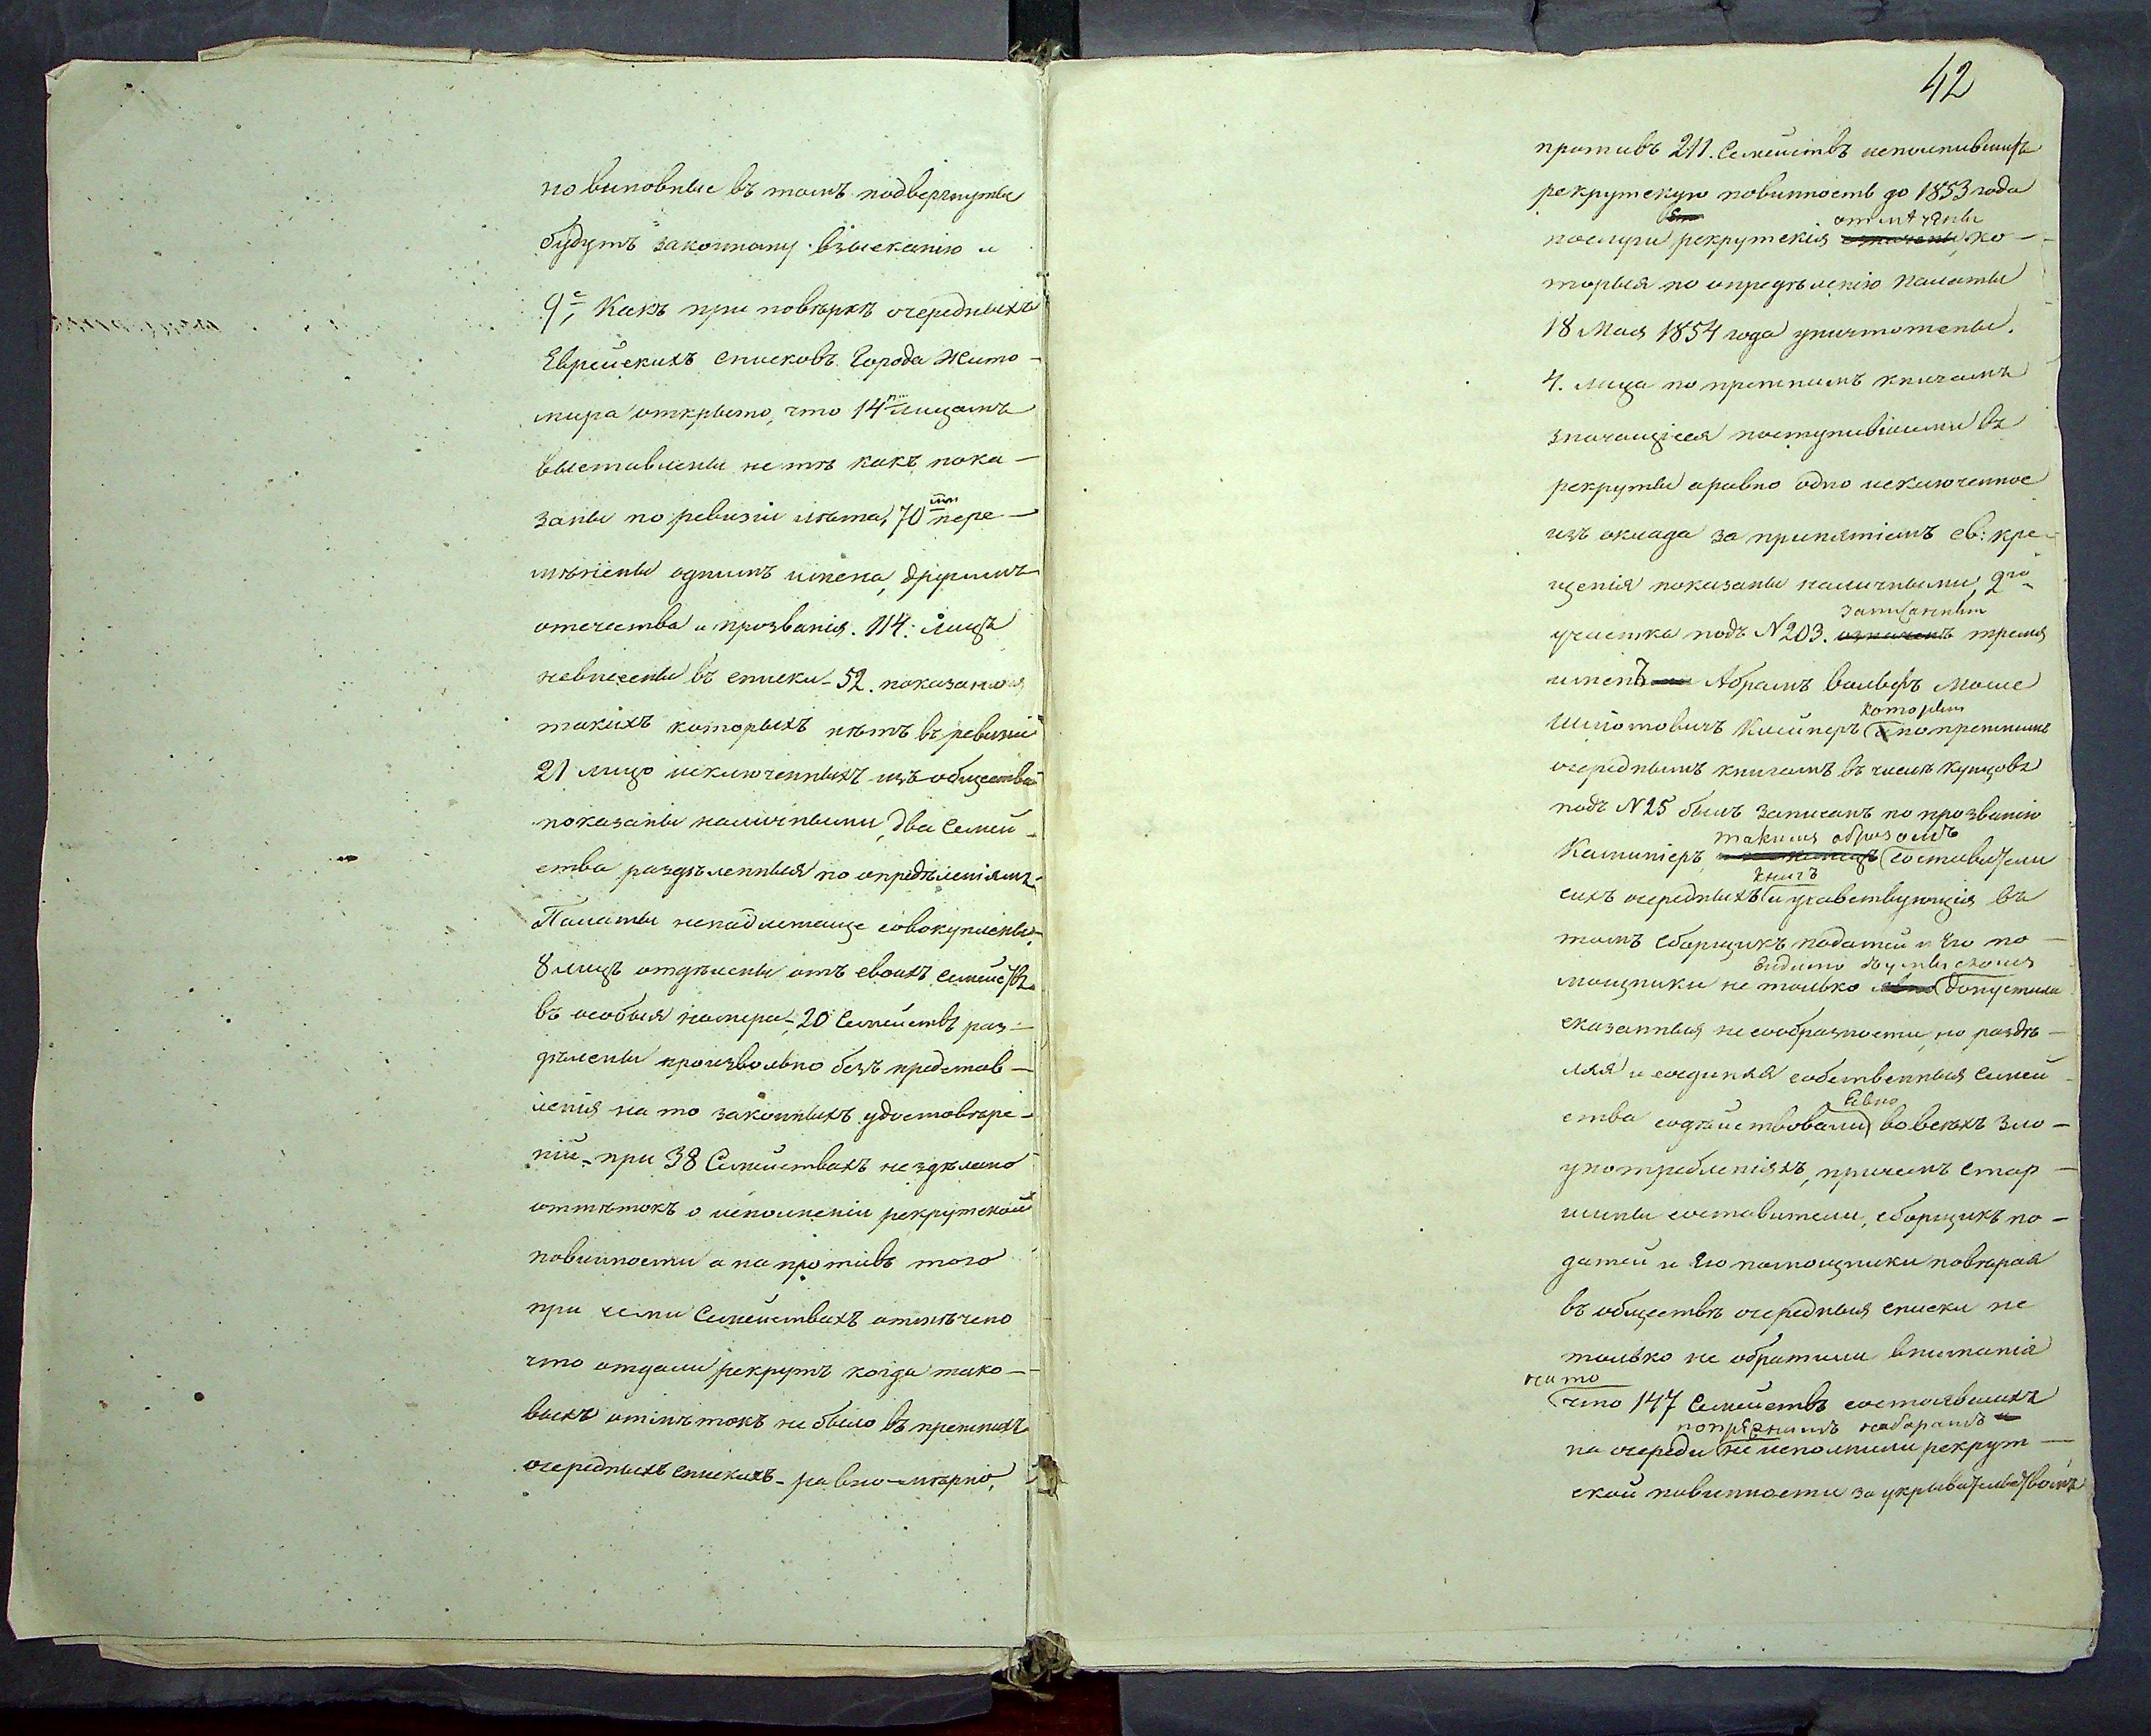 но виновные въ томъ подвергнуты
будутъ законному взысканію и
9е, Какъ при повѣркѣ очередныхъ
Еврейскихъ списковъ Города Жито-
мира открыто, что 14ти Лицамъ
выставлены не тѣ какъ пока-
заны по ревизіи лѣта, 70ти пере-
мѣнены однимъ имена, другимъ
отечества и прозванія. 114. лицъ
невнесены въ списки - 52. показаны
такихъ которыхъ нѣтъ въ ревизіи
21 лицо исключенныхъ изъ общества
показаны наличными, два Семей-
ства раздѣленныя по опредѣленіямъ
Палаты ненадлежаще совокуплены,
8 лицъ отдѣлены отъ своихъ семействъ
въ особыя номера, 20 Семействъ раз-
дѣлены произвольно безъ представ-
ленія на то законныхъ удостовѣре-
ній - при 38 Семействахъ не здѣлано
отмѣтокъ о исполненіи рекрутской
повинности а на противъ того
при семи Семействахъ отмѣчено
что отдали рекрутъ когда тако-
выхъ отмѣтокъ не было въ прежнихъ
очередныхъ спискахъ - равно мѣрно,
42
противъ 211. Семействъ неполнившихъ
рекрутскую повинность до 1853 года
отмѣчены
послуги рекрутскія ко-
торыя по опредѣленію Палаты
18 Мая 1854 года уничтожены.
4. лица по прежнимъ книгамъ
значащіеся поступившими въ
рекруты а равно одно исключенное
изъ оклада за принятіемъ св: кре-
щенія показаны наличными, 2го
записанный
участка подъ N 203. тремя
именъ Абрамъ Вольфъ Моше
который
Шліомовичъ Клейнеръ по прежнимъ
очереднымъ книгамъ въ числѣ купцовъ
подъ N 25 былъ записанъ по прозванію
такимъ образомъ
составители
книгъ
сихъ очередныхъ и учавствующія въ
томъ сборщикъ податей и Его по-
видимо съ умысломъ
мощники не только допустили
сказанныя несообразности, но раздѣ-
ляя и соединяя собственныя Семей-
явно
ства содѣйствовали во всѣхъ зло-
употребленіяхъ, причемъ Стар-
шины составители, сборщикъ по-
датей и Его помощники повѣряя
въ обществѣ очередныя списки не
только не обратили вниманія
на то
что 147 Семействъ состоявшихъ
по прежнимъ наборамъ
на очереди не исполнили рекрут-
ской повинности за укрывательствомъ